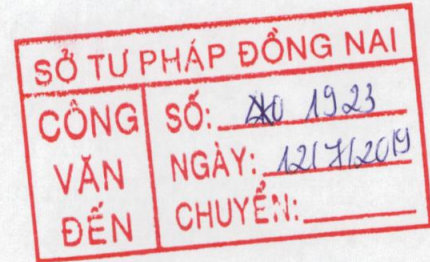 SỞ TƯ PHÁP ĐỒNG NAI
CÔNG VĂN ĐẾN
SỐ: 1923
NGÀY: 12/7/2019
CHUYỂN: